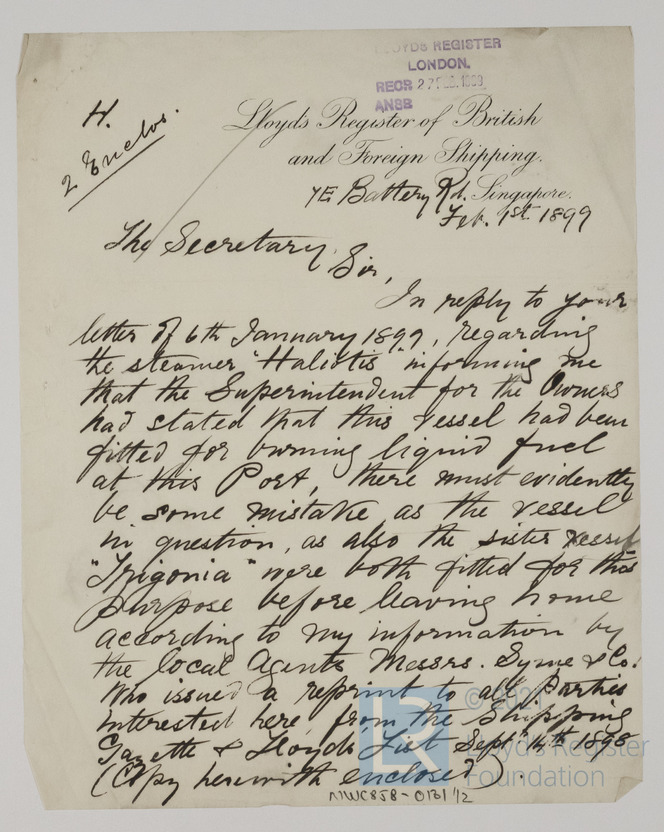 LLOYDS REGISTER
LONDON.
RECR 27 FEB. 1899
ANSR
H.
2 Enclos.
Lloyds Register of British
and Foreign Shipping.
7E Battery Rd. Singapore.
Feb. 1st 1899
The Secretary
Sir,
In reply to your
letter of 6th January 1899, regarding
the steamer "Haliotis" informing me
that the Superintendent for the Owners
had stated that this vessel had been
fitted for burning liquid fuel
at this Port, there must evidently
be some mistake as the vessel
in question, as also the sister vessel
"Trigonia" were both fitted for this
purpose before leaving home
according to my information by
the local Agents Messrs. Syme & Co.
who issued a reprint to all Parties
interested here, from the Shipping
Gazette & Lloyds List Sept. 14th 1898
(Copy herewith enclosed).
© 2021
LR
Lloyd's Register
Foundation